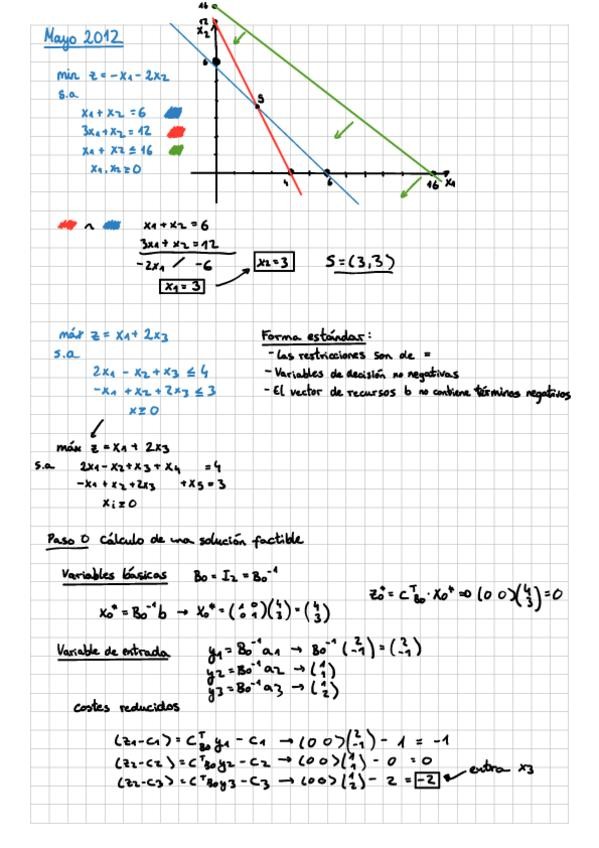 Mayo 2012
min z = -x1 - 2x2
s.a
x1 + x2 = 6
3x1 + x2 = 12
x1 + x2 ≤ 16
x1, x2 ≥ 0
16
12
x2
6
S
4
6
16
x1
∩
x1 + x2 = 6
3x1 + x2 = 12
-2x1 / -6
x1 = 3
x2 = 3
S = (3,3)
máx z = x1 + 2x3
s.a
2x1 - x2 + x3 ≤ 4
-x1 + x2 + 2x3 ≤ 3
x ≥ 0
Forma estándar:
- Las restricciones son de =
- Variables de decisión no negativas
- El vector de recursos b no contiene términos negativos
máx z = x1 + 2x3
s.a 2x1 - x2 + x3 + x4 = 4
-x1 + x2 + 2x3 + x5 = 3
xi ≥ 0
Paso 0 Cálculo de una solución factible
Variables básicas B0 = I2 = B0^-1
x0* = B0^-1 b → x0* = (1 0 / 0 1)(4 / 3) = (4 / 3)
z0* = C^T B0 · x0* ⇒ (0 0)(4 / 3) = 0
Variable de entrada y1 = B0^-1 a1 → B0^-1 (2 / -1) = (2 / -1)
y2 = B0^-1 a2 → (1 / 1)
y3 = B0^-1 a3 → (1 / 2)
costes reducidos
(z1-c1) = C^T B0 y1 - c1 → (0 0)(2 / -1) - 1 = -1
(z2-c2) = C^T B0 y2 - c2 → (0 0)(1 / 1) - 0 = 0
(z2-c3) = C^T B0 y3 - c3 → (0 0)(1 / 2) - 2 = -2
entra x3